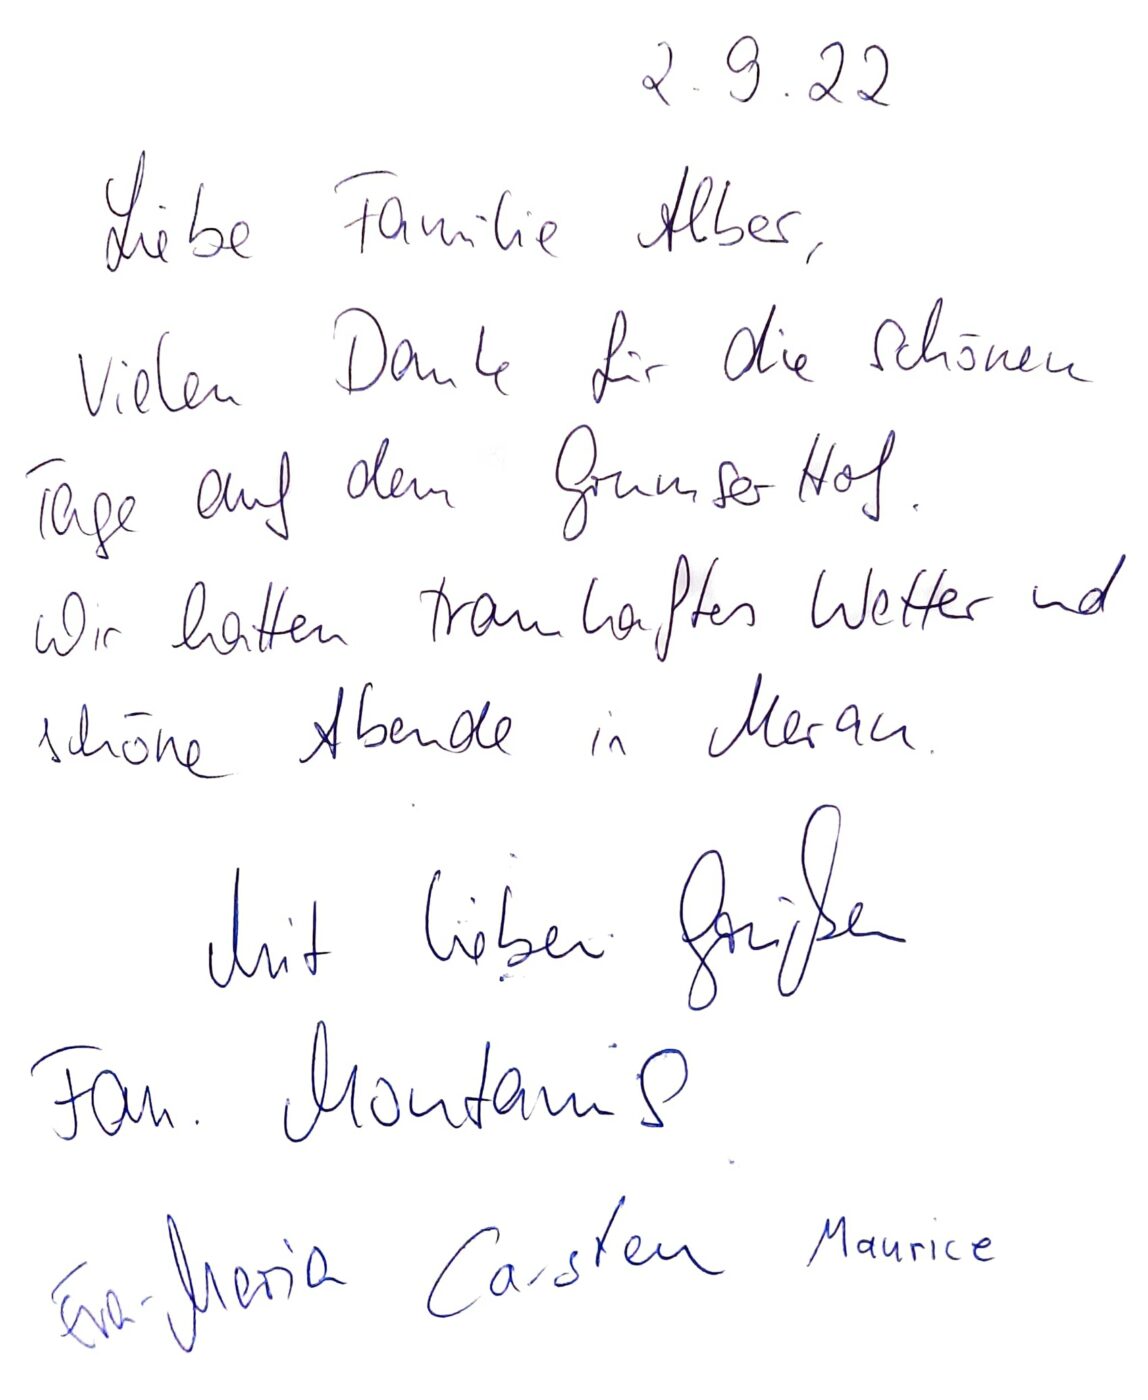 2.9.22
Liebe Familie Alber,
Vielen Dank für die schönen
Tage auf dem Grumser Hof.
Wir hatten traumhaftes Wetter und
schöne Abende in Meran.
Mit lieben Grüßen
Fam. Montanis
Eva-Maria Carsten Maurice